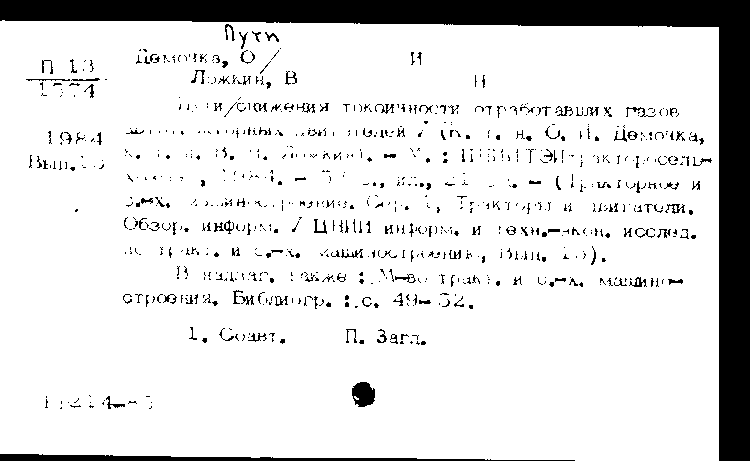 Пути
Демочка, О И
П 13 Ложкин, В Н
1574
Пути/снижения токсичности отработавших газов
1984 двигателей / (К. т. н. О. И. Демочка,
Вып. к. т. н. В. Н. Ложкин). – М. : ЦНИИТЭИтракторосель-
1984. – с., ил., – (Тракторное и
с.-х. машиностроение. Сер. 1, Тракторы и двигатели.
Обзор. информ. / ЦНИИ информ. и техн.-экон. исслед.
по тракт. и с.-х. машиностроению, Вып. 13).
В надзаг. также : М-во тракт. и с.-х. машино-
строения. Библиогр. : с. 49–52.
1. Соавт. П. Загл.